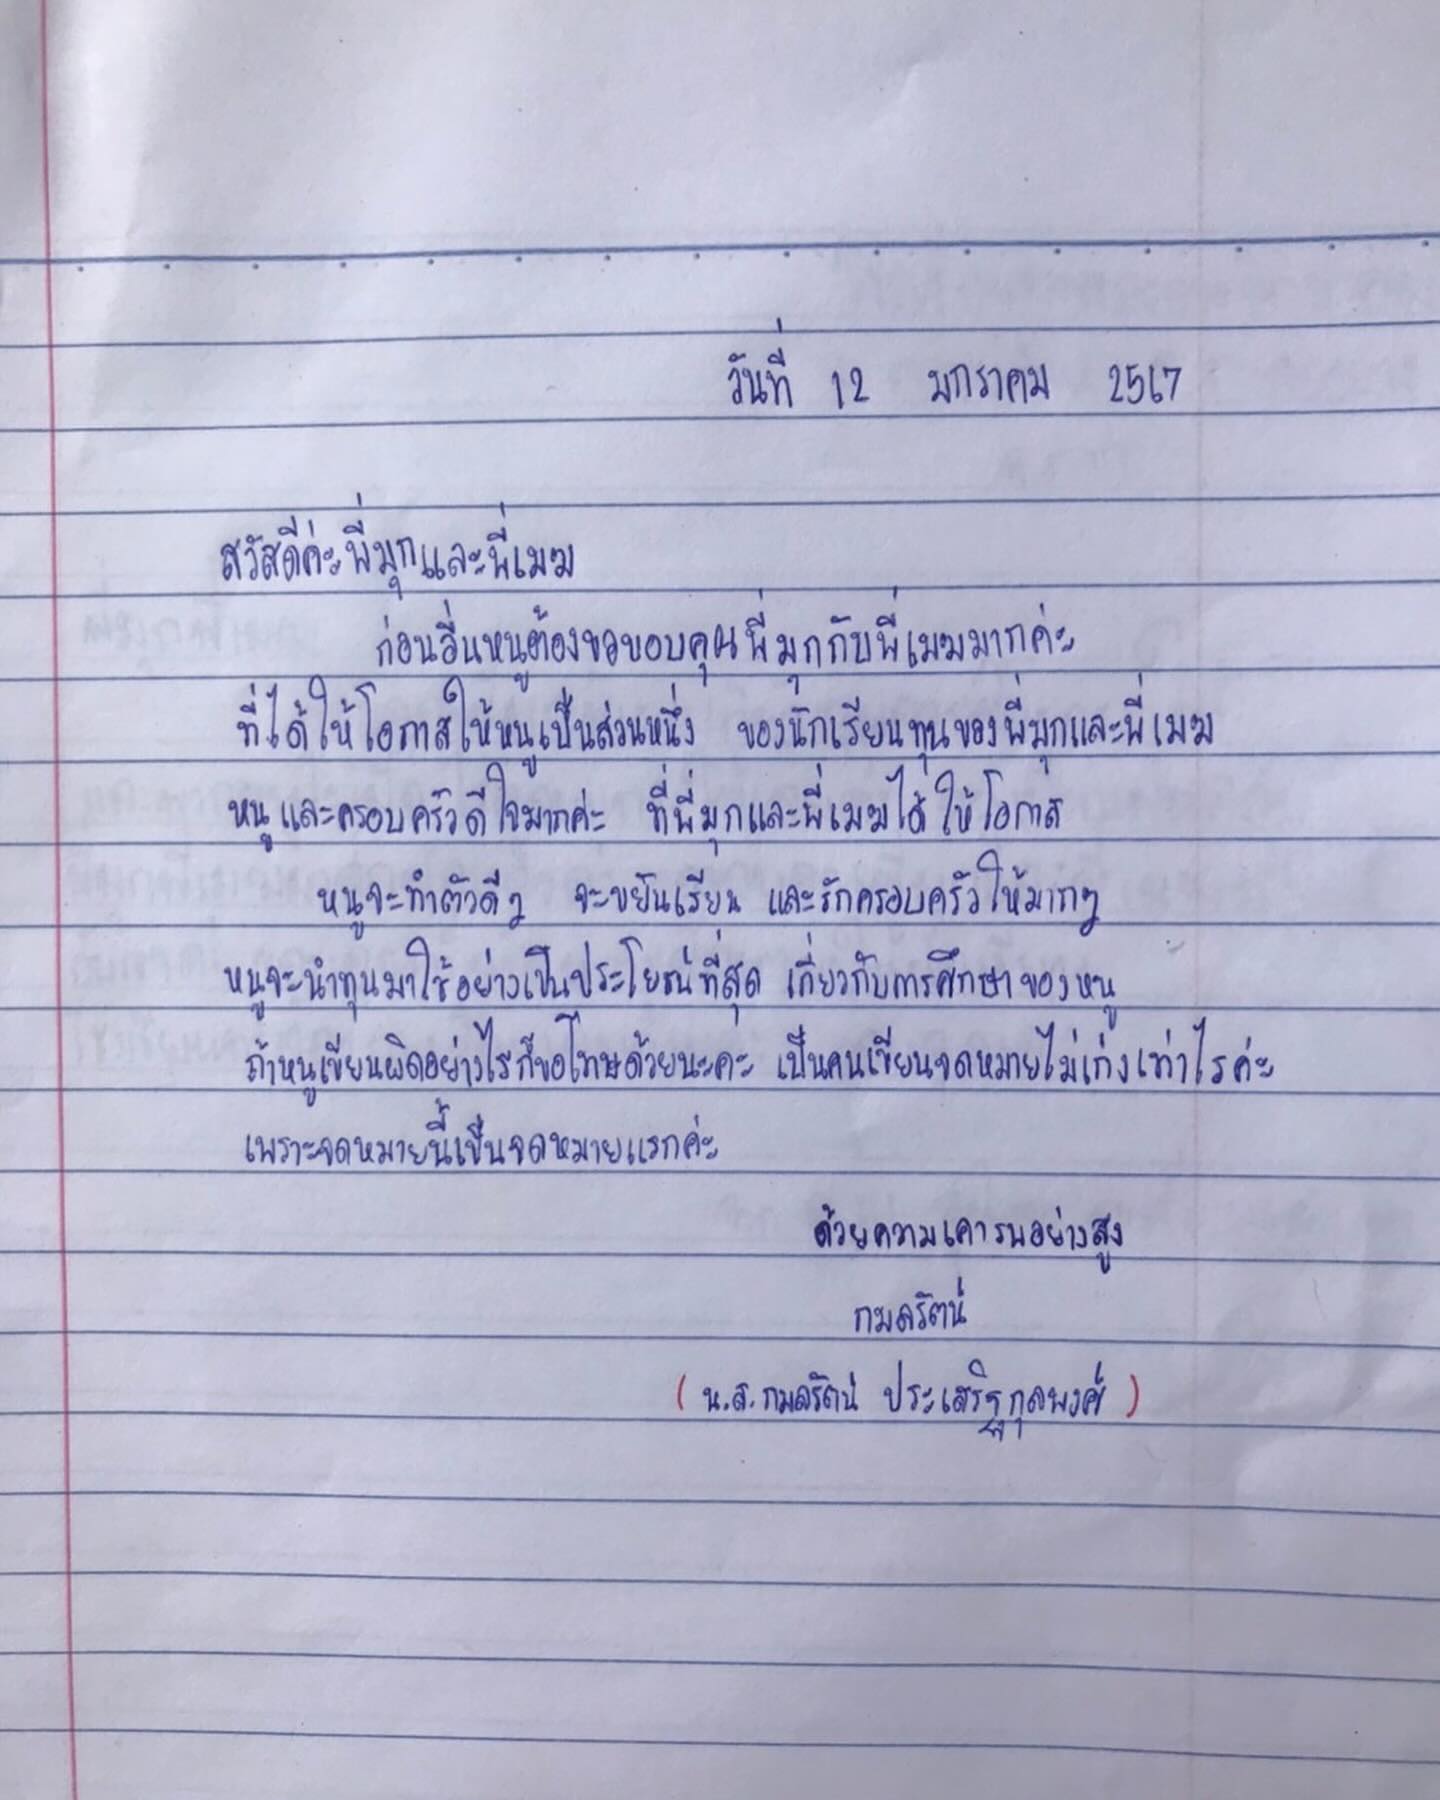 วันที่ 12 มกราคม 2567
สวัสดีค่ะพี่มุกและพี่เมฆ
ก่อนอื่นหนูต้องขอขอบคุณพี่มุกกับพี่เมฆมากค่ะ
ที่ได้ให้โอกาสให้หนูเป็นส่วนหนึ่ง ของนักเรียนทุนของพี่มุกและพี่เมฆ
หนูและครอบครัวดีใจมากค่ะ ที่พี่มุกและพี่เมฆได้ให้โอกาส
หนูจะทำตัวดีๆ จะขยันเรียน และรักครอบครัวให้มากๆ
หนูจะนำทุนมาใช้อย่างเป็นประโยชน์ที่สุด เกี่ยวกับการศึกษาของหนู
ถ้าหนูเขียนผิดอย่างไรก็ขอโทษด้วยนะคะ เป็นคนเขียนจดหมายไม่เก่งเท่าไรค่ะ
เพราะจดหมายนี้เป็นจดหมายแรกค่ะ
ด้วยความเคารพอย่างสูง
กมลรัตน์
( น.ส.กมลรัตน์ ประเสริฐกุลพงศ์ )